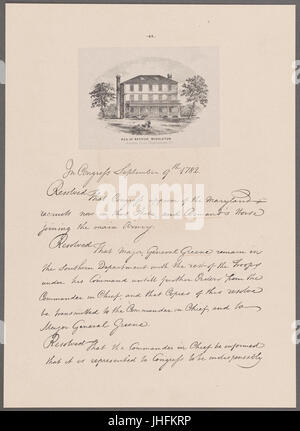 RES. OF ARTHUR MIDDLETON
In Congress September 9th 1782
Resolved
That Congress approve of the Maryland
recruits now in that State and Armand's Horse
joining the main Army
Resolved
That Major General Greene remain in
the Southern Department with the rest of the Troops
under his Command untill further Orders from the
Commander in Chief, and that Copies of this resolve
be transmitted to the Commander in Chief, and to
Major General Greene
Resolved That the Commander in Chief be informed
that it is represented to Congress to be indispensibly
alamy
Image ID: JHFKRP
www.alamy.com